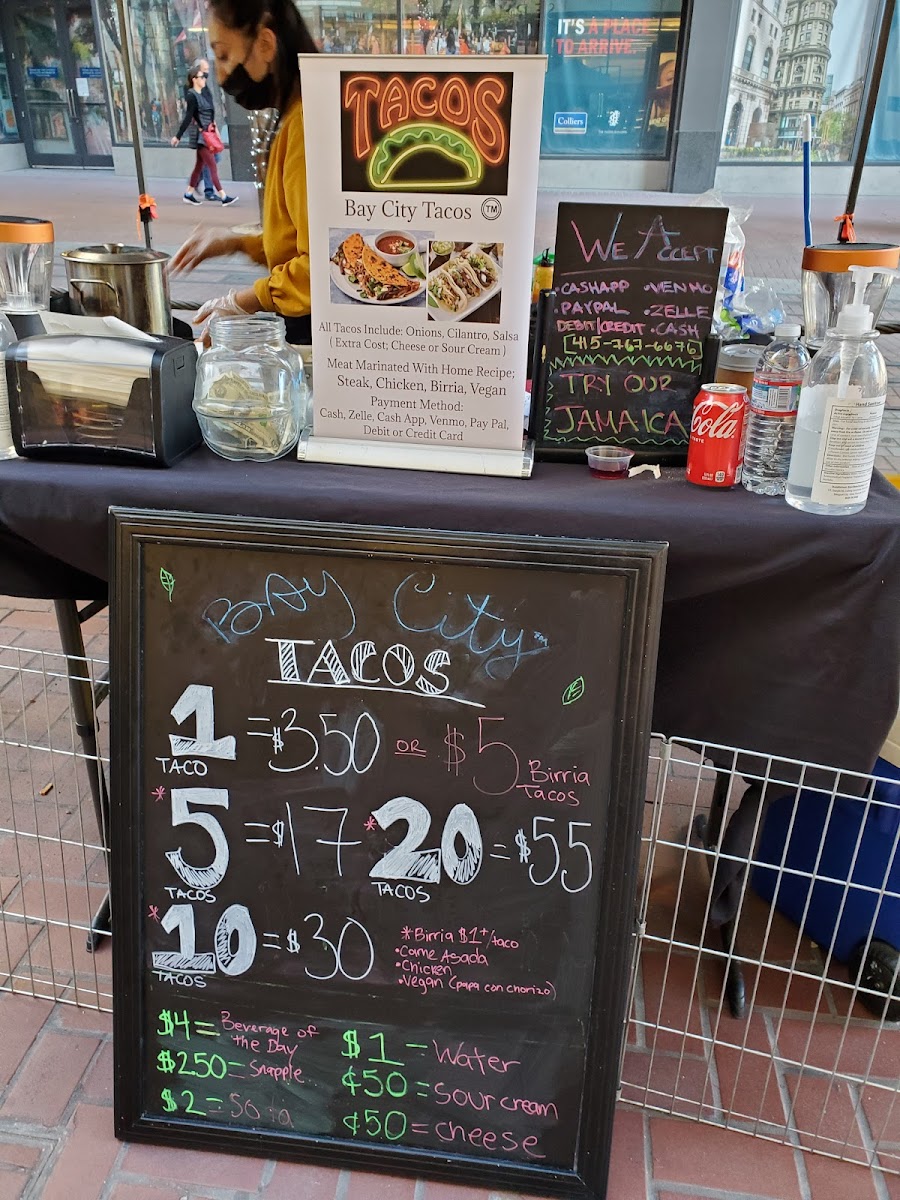 IT'S A PLACE
TO ARRIVE
Colliers
TACOS
Bay City Tacos TM
All Tacos Include: Onions, Cilantro, Salsa
( Extra Cost; Cheese or Sour Cream )
Meat Marinated With Home Recipe;
Steak, Chicken, Birria, Vegan
Payment Method:
Cash, Zelle, Cash App, Venmo, Pay Pal,
Debit or Credit Card
WE ACCEPT
• CASHAPP • VENMO
• PAYPAL • ZELLE
DEBIT/CREDIT • CASH
[415-767-6676]
TRY OUR
JAMAICA
Coca-Cola
Hand Sanitizer
BAY City
TACOS
1 = $3.50 OR $5 Birria
TACO Tacos
*5 = $17 *20 = $55
TACOS TACOS
*10 = $30
TACOS
*Birria $1+/taco
• Carne Asada
• Chicken
• Vegan (papa con chorizo)
$4 = Beverage of
the Day
$2.50 = Snapple
$2 = Soda
$1 = Water
¢50 = Sour cream
¢50 = cheese